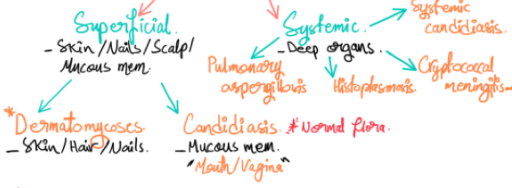 Superficial.
- Skin/Nails/Scalp/
Mucous mem.
* Dermatomycoses
- Skin/Hair/Nails.
Candidiasis. * Normal flora.
- Mucous mem.
"Mouth/Vagina"
Systemic.
- Deep organs.
systemic
candidiasis.
Pulmonary
aspergillosis
Histoplasmosis.
Cryptococcal
meningitis